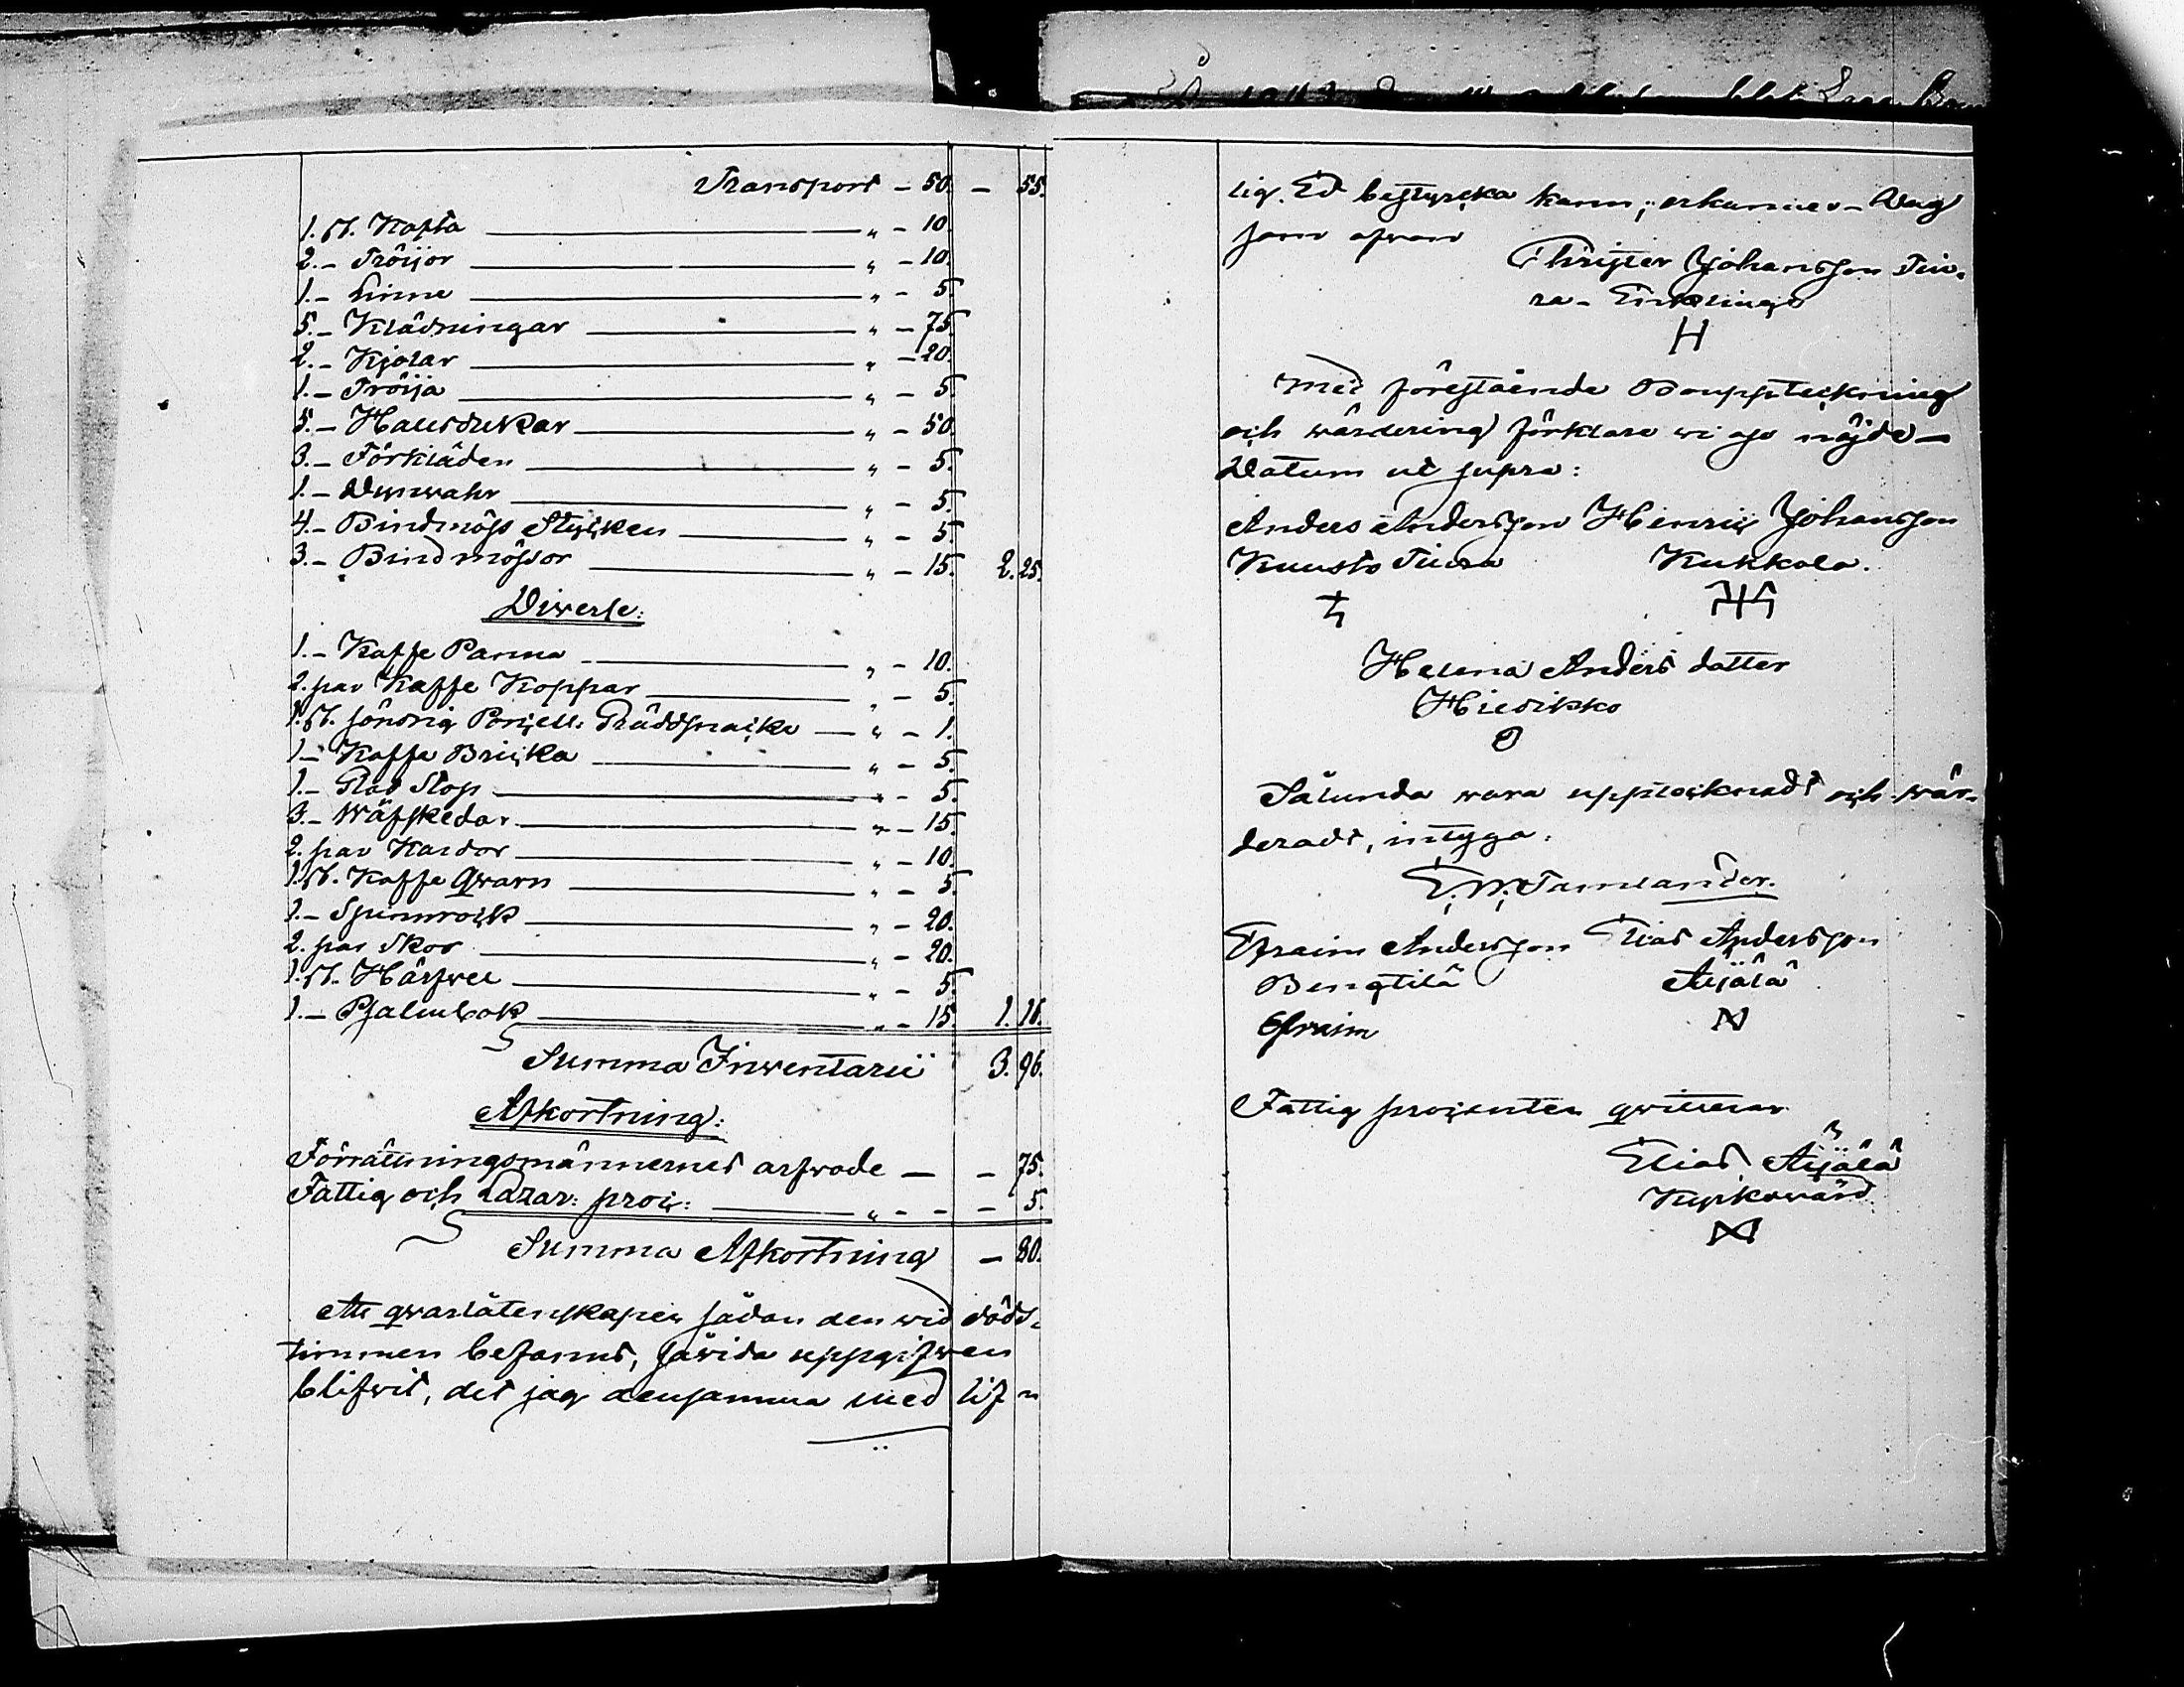 Transport – 50. – 55.
1. st. Kofta „ – 10.
2. – Tröijor „ – 10.
1. – Linne „ – 5.
5. – Klädningar „ – 75.
2. – Kjolar „ – 20.
1. – Tröija „ – 5.
5. – Halsdukar „ – 50.
3. – Förkläden „ – 5.
1. – Dynwahr „ – 5.
4. – Bindmöss Stycken „ – 5.
3. – Bindmössor „ – 15. 2. 25.
Diverse:
1. – Kaffe Panna „ – 10.
2. par Kaffe Koppar „ – 5.
1. st. söndrig Porcell: Gräddsnäcka „ – 1.
1. – Kaffe Bricka „ – 5.
1. – Glas Stop „ – 5.
3. – Wäfskedar „ – 15.
2. par Kardor „ – 10.
1. st. Kaffe Qwarn „ – 5.
1. – Spinnrock „ – 20.
2. par Skor „ – 20.
1. st. Härfwel „ – 5.
1. – Psalmbok „ – 15. 1. 16.
Summa Inventarii 3. 96.
Afkortning:
Förrättningsmännernes arfwode – – 75.
Fattig och Lazar: proc: „ – – – 5.
Summa Afkortning – 80.
Att qwarlåtenskapen sådan den wid döds-
timmen befanns, såwida uppgifwen
blifwit, det jag densamma med lif-
lig Ed bestyrcka kann, erkänner – Dag
som ofwan
Christer Johansson Tiu-
ra-
H
Med föreståënde Bouppteckning
och wärdering förklare wi oss nöjde –
Datum ut supra:
Anders Andersson Henric Johansson
Kuusto Tiura Kukkola.
Helena Anders dotter
Hiedikko
Sålunda wara upptecknadt och wär-
deradt, intyga:
E. M. Tamlander.
Efraim Andersson Elias Andersson
Bengtilä Äijälä
Efraim
Fattig procenten qwitterar
Elias Äijälä
Kyrkowärd